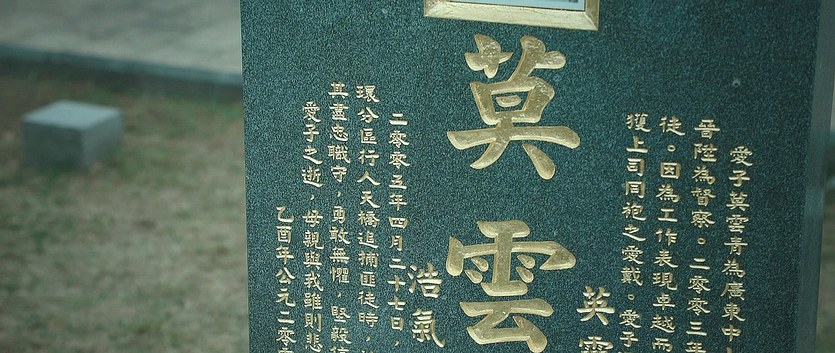 愛子莫雲青為廣東中
晉陞為督察。二零零三年
徒。因為工作表現卓越而
獲上司同袍之愛戴。愛子
英靈
莫雲
浩氣
二零零五年四月二十七日,
環分區行人天橋追捕匪徒時,
其盡忠職守,勇敢無懼,堅毅
愛子之逝,母親與我雖則悲
乙酉年公元二零